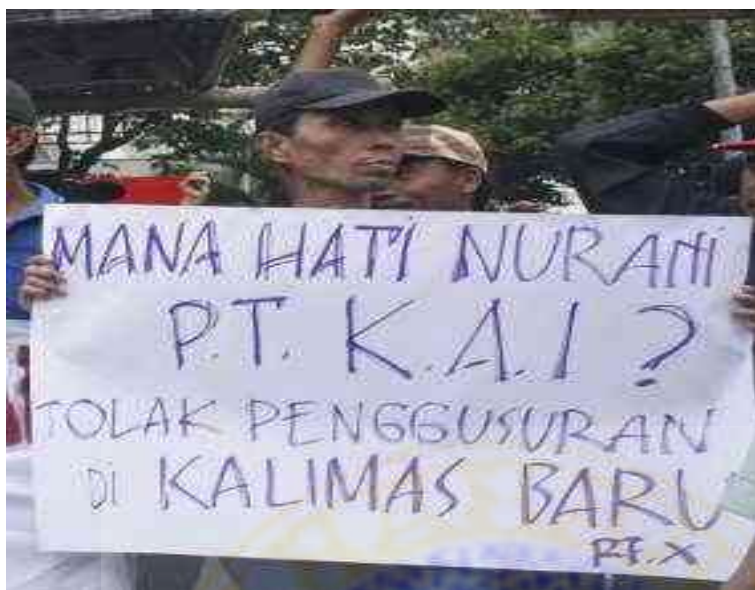 MANA HATI NURANI
P.T. K.A.I ?
TOLAK PENGGUSURAN
DI KALIMAS BARU
RT.X